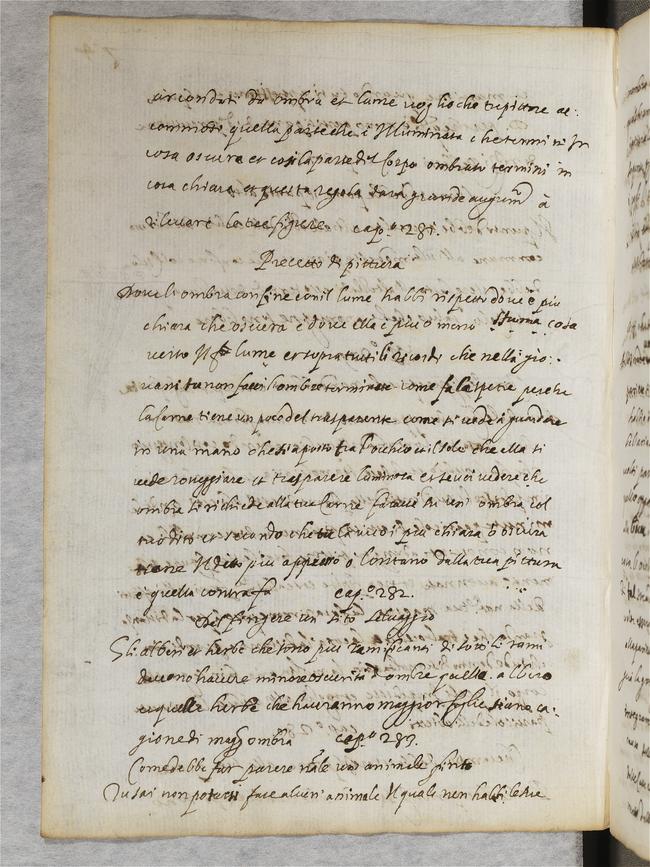 circondati da ombra et lume voglio che tu pittore ac:
commodi quella parte che è Illuminata che termini In
cosa oscura et cosi la parte del Corpo ombrata termini in
cosa chiara et questa regola darà grande augum.to à
rilevare le tue figure cap.o 281.
Precetto di pittura
Dove l'ombra confine con il lume habbi rispetto dove è piu
chiara che oscura e dove ella è piu o meno sfuma coda
verso Il lume et sopra tutto li ricordi che nelli gio:
vani tu non facci l'ombre terminate come fa la pietra perche
la Carne tiene un poco del trasparente come si vede à guardare
in una mano che sia posta tra l'occhio et il sole che ella si
vede rosseggiare et trasparere luminosa et se voi vedere che
ombra si richiede alla tua Carne farai su un' ombra col
tuo dito et secondo che tu la vuoi piu chiara ò oscura
tiene Il dito piu appresso o lontano dalla tua pittura
e quella contrafa cap.o 282.
Del fingere un sito selvaggio
Gli alberi et herbe che sono piu ramificanti di sotili rami
devono havere minore oscurità d'ombre quelli alberi
et quelle herbe che hauranno maggior foglie siano ca:
gione di magg. ombra cap.o 283.
Come debbe far parere n'ale uno animale finto
Tu sai non potersi fare alcun' animale Il quale non habbi le sue